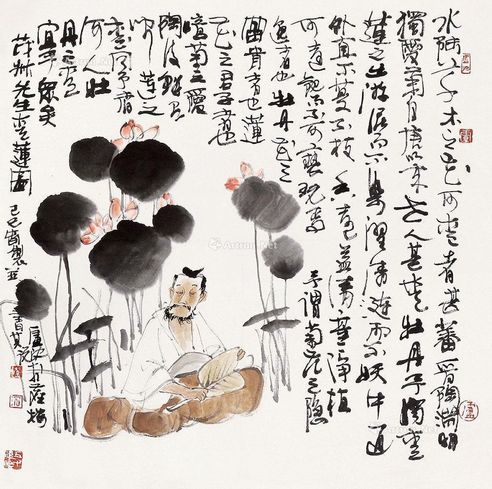 水陆草木之花可爱者甚蕃晋陶渊明
独爱菊自唐以来世人甚爱牡丹予独爱
莲之出淤泥而不染濯清涟而不妖中通
外直不蔓不枝香远益清亭亭净植
可远观不可亵玩焉
予谓菊花之隐
逸者也牡丹花之
富贵者也莲
花之君子者也
噫菊之爱
陶后鲜有
闻莲之
爱同予者
何人牡
丹之爱
宜乎众矣
茂叔先生爱莲图